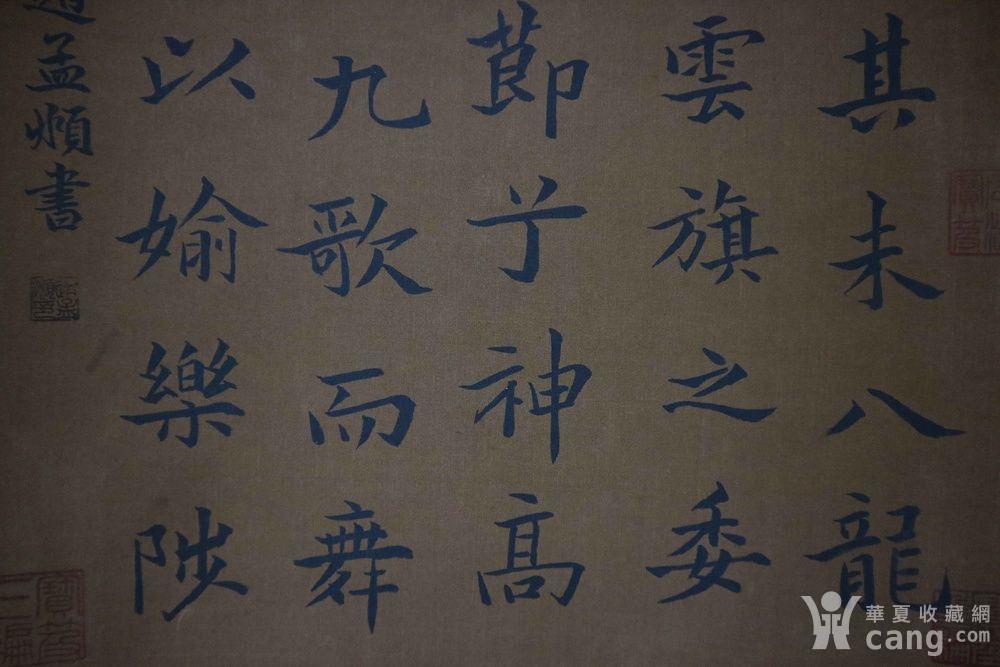 其未八龍
雲旗之委
莭兮神髙
九歌而舞
以媮樂陟
孟頫書
華夏收藏網
cang.com